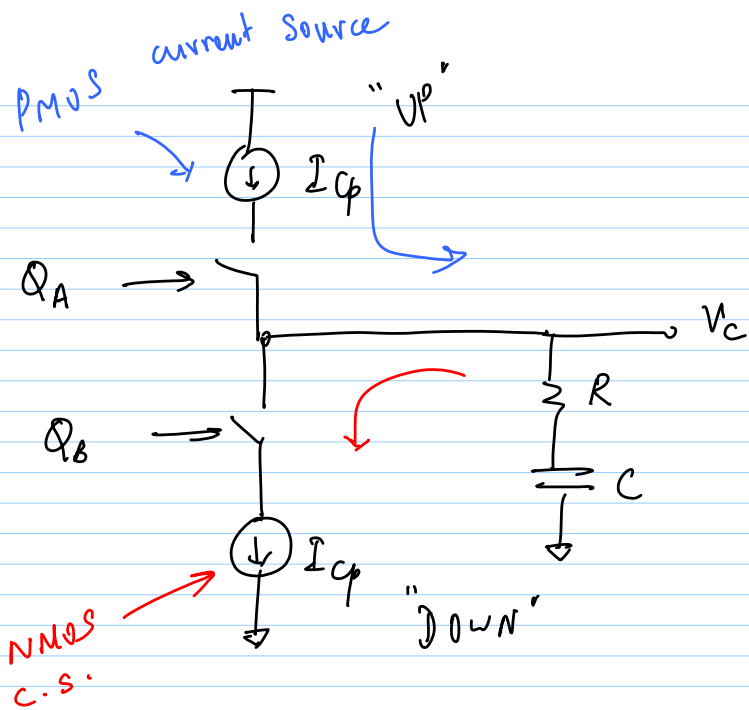 current source
PMOS
"UP"
I CP
QA
VC
R
QB
C
I CP
"DOWN"
NMOS
C.S.